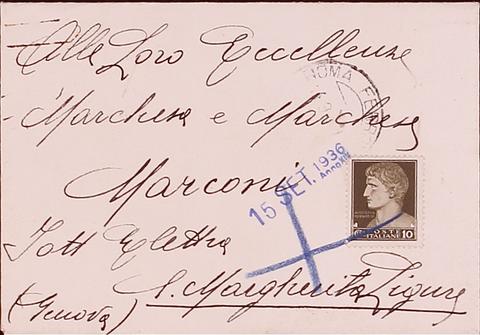 Alle Loro Eccellenze
Marchesa e Marchese
Marconi
Jatt Elettra
S. Margherita Ligure
(Genova)
ROMA FERR
15 SET. 1936
POSTE
ITALIANE
10